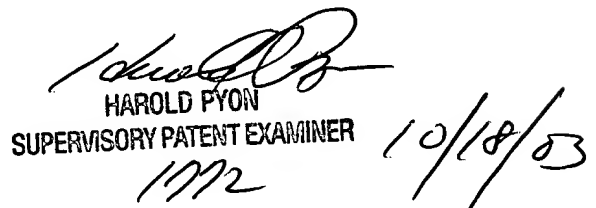 HAROLD PYON
SUPERVISORY PATENT EXAMINER 10/18/03
1772